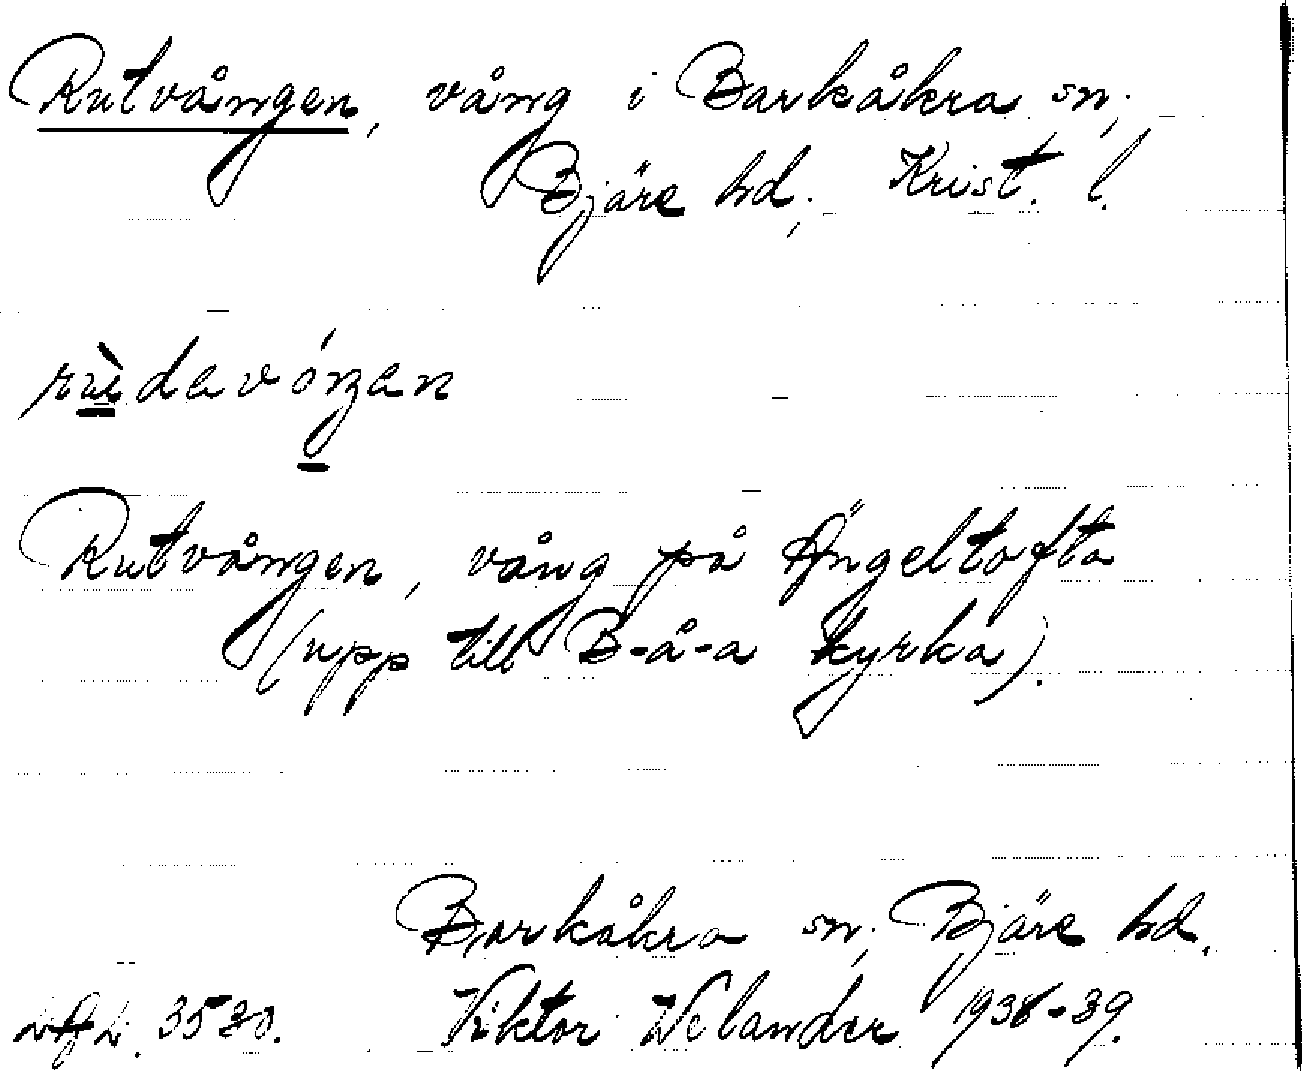 Rutvången, vång i Barkåkra sn;
Bjäre hd; Krist. l.
Rutvången, vång på Ängeltofta
(upp till B-å-a kyrka).
Barkåkra sn; Bjäre hd.
3530. Viktor Welander 1938-39.